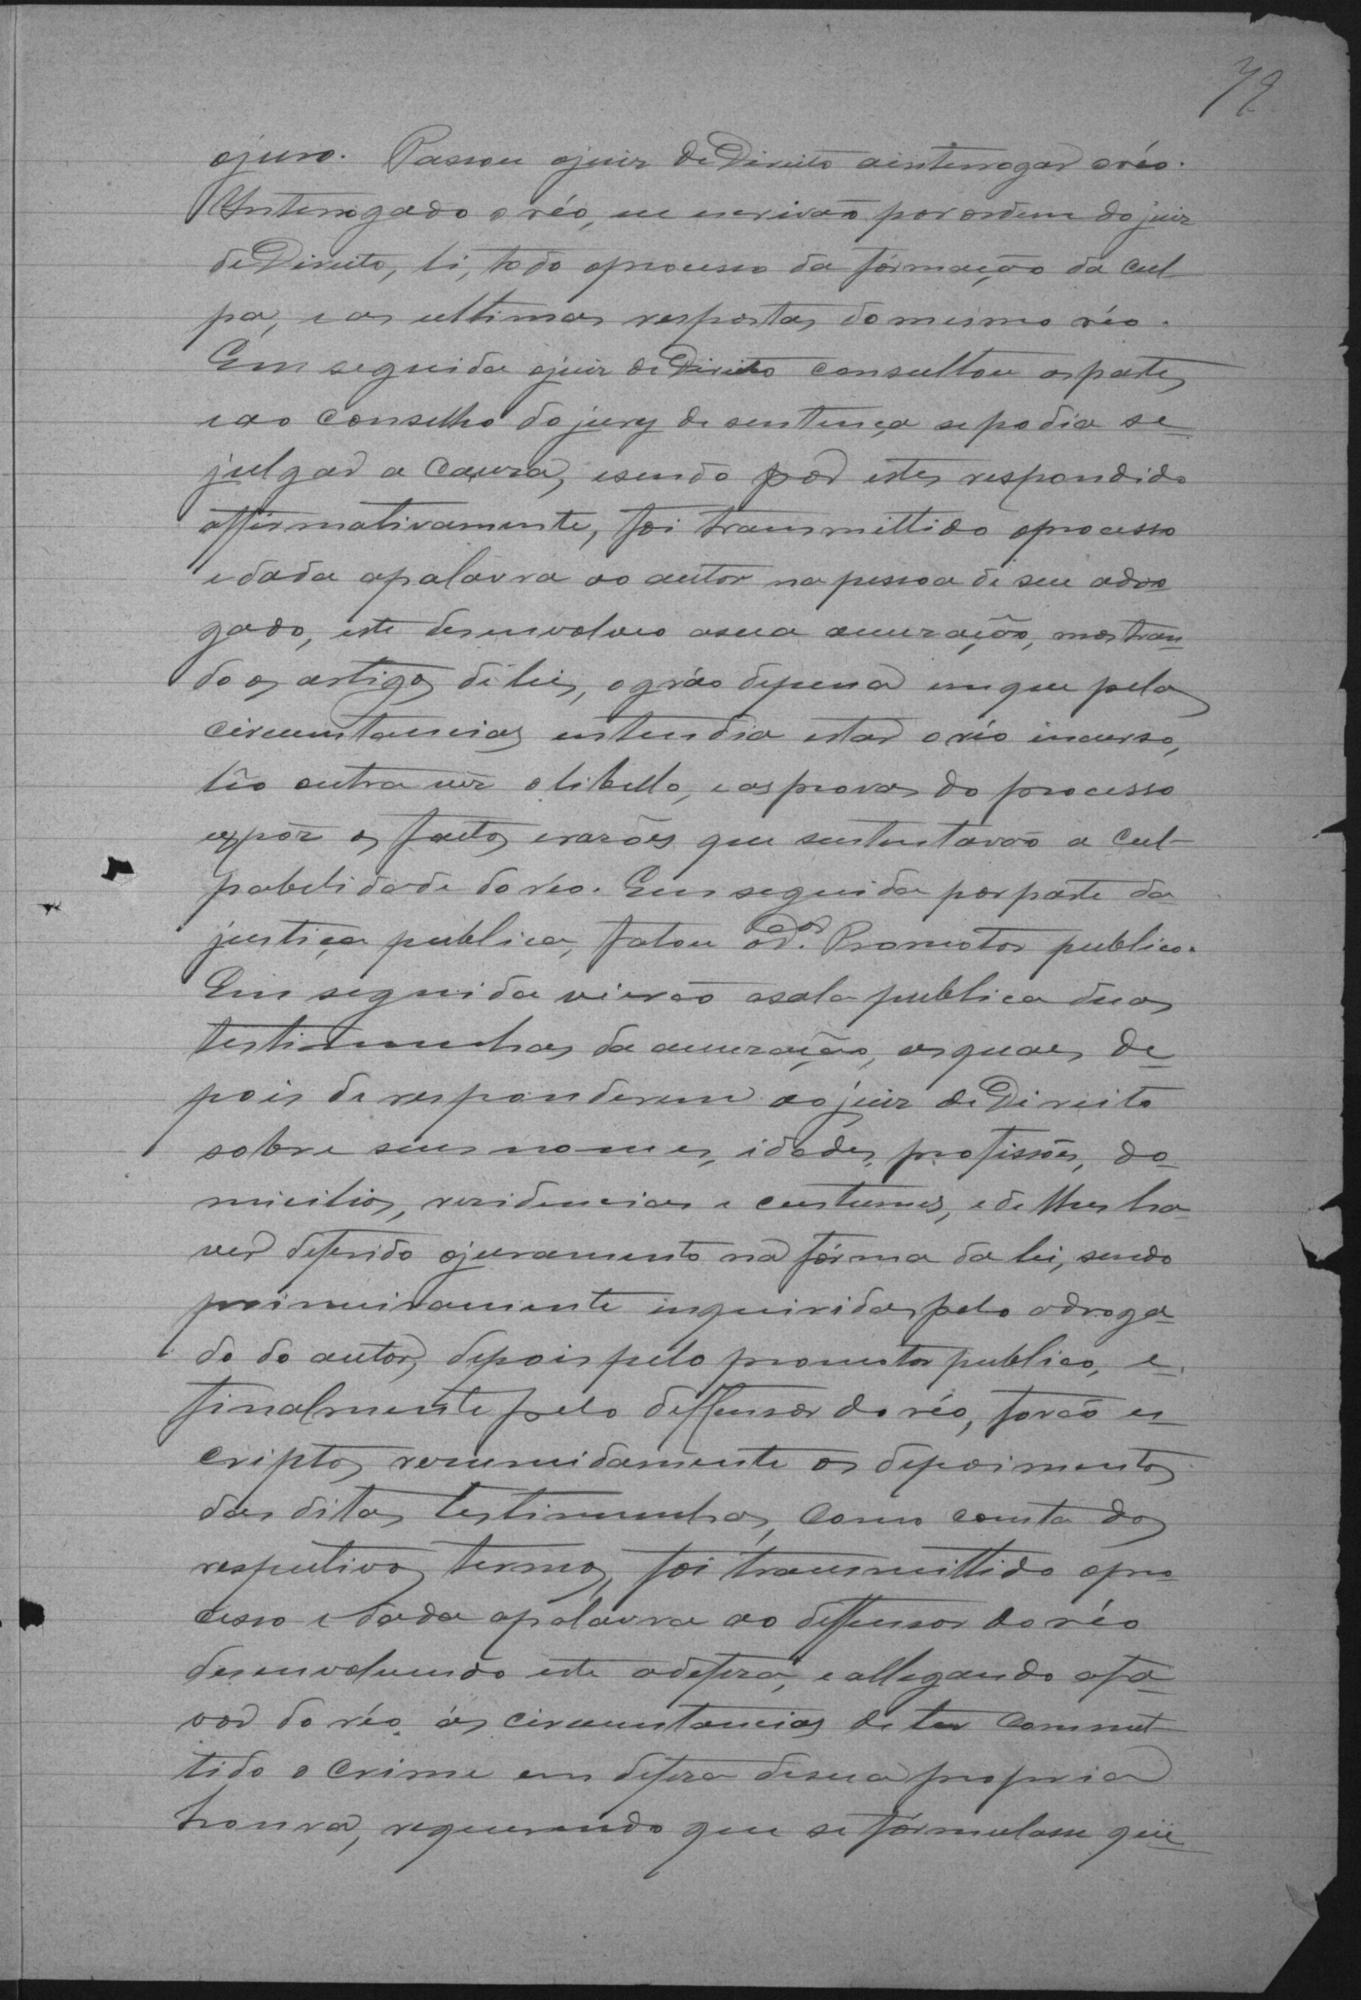 72
ojuro. Passou ojuiz deDireito ainterrogar oréo.
Interrogado o réo, eu escrivão por ordem do juiz
deDireito, li, todo oprocesso da formação da cul-
pa, e as ultimas respostas domesmo réo.
Em seguida ojuiz deDireito consultou aspartes
eao conselho dojury de sentença sepodia se
julgar a causa, esendo por estes respondido
affirmativamente, foi transmittido oprocesso
edada apalavra ao autor napessoa de seu advo
gado, este desenvolveo asua accuzação, mostran-
do os artigos de lei, ográo depena emque pelas
circumstancias entendia estar oréo incurso,
lêo outra vez olibello, easprovas do processo
expôz os factos erazões que sustentavão a cul-
pabelidade doréo. Em seguida porparte da
justiça publica, falou oDor. Promotor publico.
Em seguida vierão asala publica duas
testimunhas da accuzação, asquaes de-
pois de responderem aojuiz deDireito
sobre seus nomes, idades, profissões, do-
micilios, rezidencias e custumes, ede lhes ha-
ver deferido ojuramento na fórma da lei, sendo
primeiramente inquiridas pelo advoga-
do do autor, depois pelo promotor publico, e
finalmente pelo deffensor do réo, forão es-
criptos rezumidamente os depoimentos
das ditas testimunhas, como consta dos
respectivos termos, foi transmittido opro-
cesso edada apalavra ao deffensor do réo
desenvolvendo este adefeza, eallegando afa-
vor do réo as circumstancias de ter commet-
tido o crime em defeza desua propria
honra, requerendo que seformulasse que-